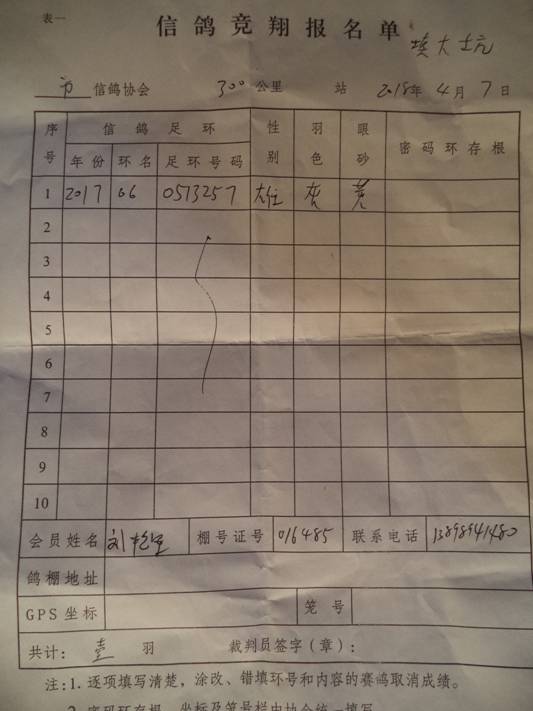 表一
信鸽竞翔报名单
填大坑
市 信鸽协会 300 公里 站 2018年 4月 7日
序号 信鸽足环 性别 羽色 眼砂 密码环存根
年份 环名 足环号码
1 2017 06 0573257 雄 灰 黄
2
3
4
5
6
7
8
9
10
会员姓名 刘 棚号证号 016485 联系电话 13898941480
鸽棚地址
GPS坐标 笼号
共计: 壹 羽 裁判员签字(章):
注:1. 逐项填写清楚,涂改、错填环号和内容的赛鸽取消成绩。
2. 密码环存根、坐标及笼号栏由协会统一填写